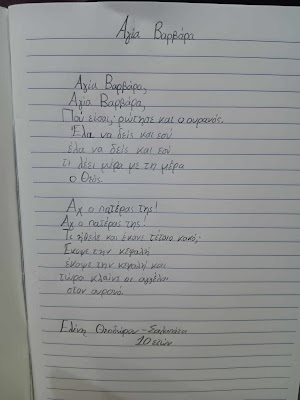 Αγία Βαρβάρα
Αγία Βαρβάρα,
Αγία Βαρβάρα,
Που είσαι; ρώτησε και ο ουρανός.
Έλα να δεις και εσύ
έλα να δεις και εσύ
τι λέει μέρα με τη μέρα
ο Θεός.
Αχ ο πατέρας της!
Αχ ο πατέρας της!
Τι ήθελε και έκανε τέτοιο κακό;
Έκοψε την κεφαλή
έκοψε την κεφαλή και
τώρα κλαίνε οι αγγέλοι
στον ουρανό.
Ελένη Θεοδώρου -
10 ετών